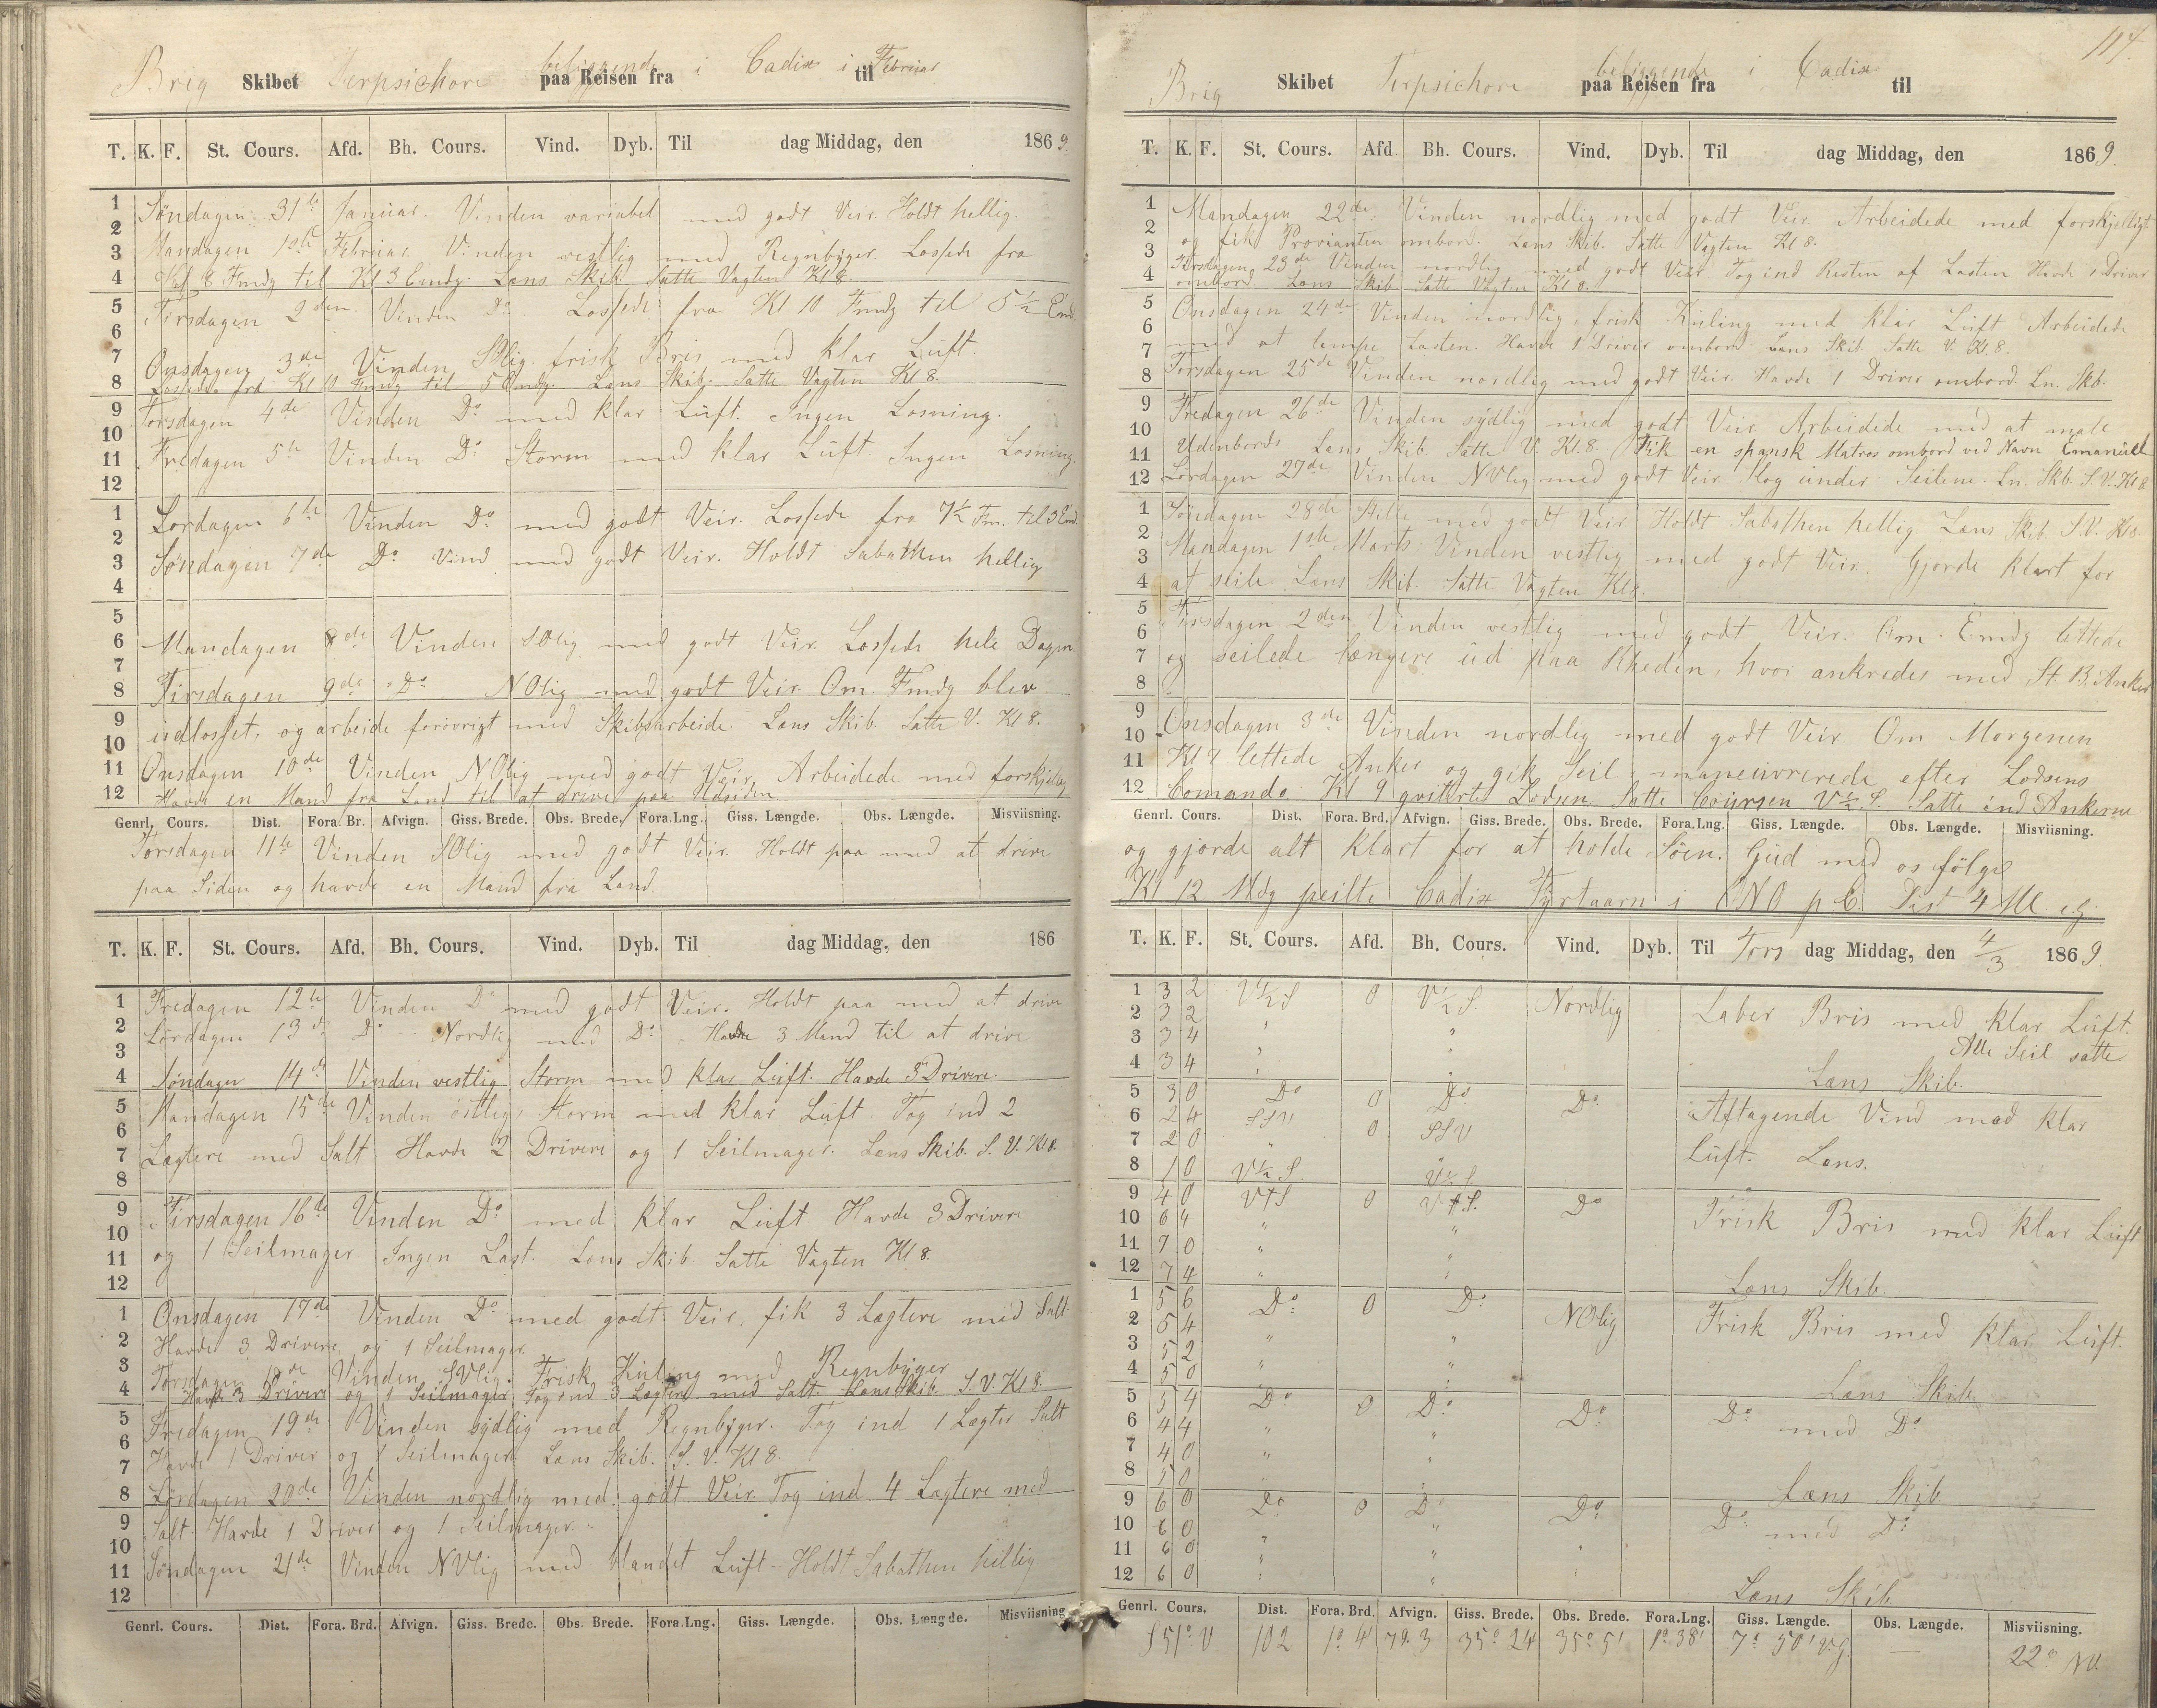 Brig Skibet Terpsichore beliggende paa Reisen fra i Cadix i til Februar
T. K. F. St. Cours. Afd. Bh. Cours. Vind. Dyb. Til dag Middag, den 1869.
Søndagen 31te Januar. Vinden variabel med godt Veir. Holdt hellig.
Mandagen 1ste Februar. Vinden vestlig med Regnbyger. Lossede fra
Kl 8 Fmdg til Kl 3 Emdg. Læns Skib Satte Vagten Kl 8.
Tirsdagen 2den Vinden Do. Lossede fra Kl 10 Fmdg til 5½ Emd.
Onsdagen 3de Vinden SOlig frisk Bris med klar Luft.
Lossede fra Kl 10 Fmdg til 5 Emdg. Læns Skib. Satte Vagten Kl 8.
Torsdagen 4de Vinden Do med klar Luft. Ingen Losning.
Fredagen 5te Vinden Do Storm med klar Luft. Ingen Losning.
Lørdagen 6te Vinden Do med godt Veir. Lossede fra 7½ Fm. til 3 Emd
Søndagen 7de Do Vind med godt Veir. Holdt Sabathen hellig
Mandagen 8de Vinden SOlig med godt Veir. Lossede hele Dagen.
Tirsdagen 9de Do NOlig med godt Veir. Om Fmdg blev
udlosset, og arbeide forøvrigt med Skibsarbeide. Læns Skib. Satte V. Kl 8.
Onsdagen 10de Vinden NOlig med godt Veir. Arbeidede med forskjellig
Havde en Mand fra Land til at drive paa Udsiden.
Genrl. Cours. Dist. Fora. Br. Afvign. Giss. Brede. Obs. Brede. Fora. Lng. Giss. Længde. Obs. Længde. Misviisning.
Torsdagen 11te Vinden SOlig med godt Veir. Holdt paa med at drive
paa Siden og havde en Mand fra Land.
T. K. F. St. Cours. Afd. Bh. Cours. Vind. Dyb. Til dag Middag, den 186
Fredagen 12te Vinden Do med godt Veir. Holdt paa med at drive
Lørdagen 13de Do Nordlig med Do. Havde 3 Mand til at drive
Søndagen 14de Vinden vestlig Storm med klar Luft. Havde 3 Drivere.
Mandagen 15de Vinden østlig, Storm med klar Luft. Tog ind 2
Lægtere med Salt Havde 2 Drivere og 1 Seilmager. Læns Skib. S. V. Kl 8.
Tirsdagen 16de Vinden Do med klar Luft Havde 3 Drivere
og 1 Seilmager Ingen Last. Læns Skib Satte Vagten Kl 8.
Onsdagen 17de Vinden Do med godt Veir, fik 3 Lægtere med Salt
Havde 3 Drivere og 1 Seilmager.
Torsdagen 18de Vinden SVlig. Frisk Kuling med Regnbyger
Havde 3 Drivere og 1 Seilmager Tog ind 3 Lægtere med Salt. Læns Skib. S. V. Kl 8.
Fredagen 19de Vinden sydlig med Regnbyger. Tog ind 1 Lægter Salt
Havde 1 Driver og 1 Seilmager. Læns Skib. S. V. Kl 8.
Lørdagen 20de Vinden nordlig med godt Veir. Tog ind 4 Lægtere med
Salt. Havde 1 Driver og 1 Seilmager.
Søndagen 21de Vinden NVlig med blandet Luft. Holdt Sabathen hellig
Genrl. Cours. Dist. Fora. Brd. Afvign. Giss. Brede. Obs. Brede. Fora. Lng. Giss. Længde. Obs. Længde. Misviisning
117.
Brig Skibet Terpsichore beliggende paa Reisen fra i Cadix til
T. K. F. St. Cours. Afd. Bh. Cours. Vind. Dyb. Til dag Middag, den 1869.
Mandagen 22de Vinden nordlig med godt Veir. Arbeidede med forskjelligt
og fik Provianten ombord. Læns Skib. Satte Vagten Kl 8.
Tirsdagen 23de Vinden nordlig med godt Veir. Tog ind Resten af Lasten Havde 1 Driver
ombord. Læns Skib. Satte Vagten Kl 8.
Onsdagen 24de Vinden nordlig, frisk Kuling med klar Luft Arbeidede
med at lempe Lasten. Havde 1 Driver ombord. Læns Skib. Satte V. Kl. 8.
Torsdagen 25de Vinden nordlig med godt Veir. Havde 1 Driver ombord. Ln. Skb.
Fredagen 26de Vinden sydlig med godt Veir Arbeidede med at male
Udenbords Læns Skib Satte V. Kl. 8. Fik en spansk Matros ombord ved Navn Emanuel
Lørdagen 27de Vinden NVlig med godt Veir. Slog under Seilene. Ln. Skb. S. V. Kl 8
Søndagen 28de Stille med godt Veir Holdt Sabathen hellig Læns Skib. S. V. Kl 8.
Mandagen 1ste Marts Vinden vestlig med godt Veir. Gjorde klart for
at seile. Læns Skib. Satte Vagten Kl 8.
Tirsdagen 2den Vinden vestlig med godt Veir. Om Emdg lettede
og seilede længere ud paa Rheden, hvor ankredes med St. B. Anker
Onsdagen 3de Vinden nordlig med godt Veir. Om Morgenen
Kl 7 lettede Anker og gik Seil, maneuvrerede efter Lodsens
Comando Kl 9 qvitterte Lodsen. Satte Coursen V½S. Satte ind Ankerne
Genrl. Cours. Dist. Fora. Brd. Afvign. Giss. Brede. Obs. Brede. Fora. Lng. Giss. Længde. Obs. Længde. Misviisning.
og gjorde alt klart for at holde Søen. Gud med os følge
Kl 12 Mdg peilte Cadix Fyrtaarn i ONO p C. Dist 4 Ml
T. K. F. St. Cours. Afd. Bh. Cours. Vind. Dyb. Til Tors dag Middag, den 4/3 1869.
1 3 2 V½S 0 V½S. Nordlig Laber Bris med klar Luft.
2 3 2 " "
3 3 4 " " Alle Seil satte
4 3 4 " " Læns Skib.
5 3 0 Do 0 Do Do Aftagende Vind med klar
6 2 4 SSV 0 SSV
7 2 0 " " Luft. Læns.
8 1 0 V½S. V½S.
9 4 0 V†S 0 V†S. Do Frisk Bris med klar Luft
10 6 4 " "
11 7 0 " "
12 7 4 " " Læns Skib.
1 5 6 Do 0 Do NOlig Frisk Bris med klar Luft.
2 5 4 " "
3 5 2 " "
4 5 0 " " Læns Skib
5 5 4 Do 0 Do Do Do med Do
6 4 4 " "
7 4 0 " "
8 5 0 " " Læns Skib
9 6 0 Do 0 Do Do Do med Do
10 6 0 " "
11 6 0 " "
12 6 0 " " Læns Skib.
Genrl. Cours. Dist. Fora. Brd. Afvign. Giss. Brede. Obs. Brede. Fora. Lng. Giss. Længde. Obs. Længde. Misviisning.
S 51° V 102 1° 4' 79.3 35° 24 35° 51 1° 38' 7° 50' V.G. — 22° NV.